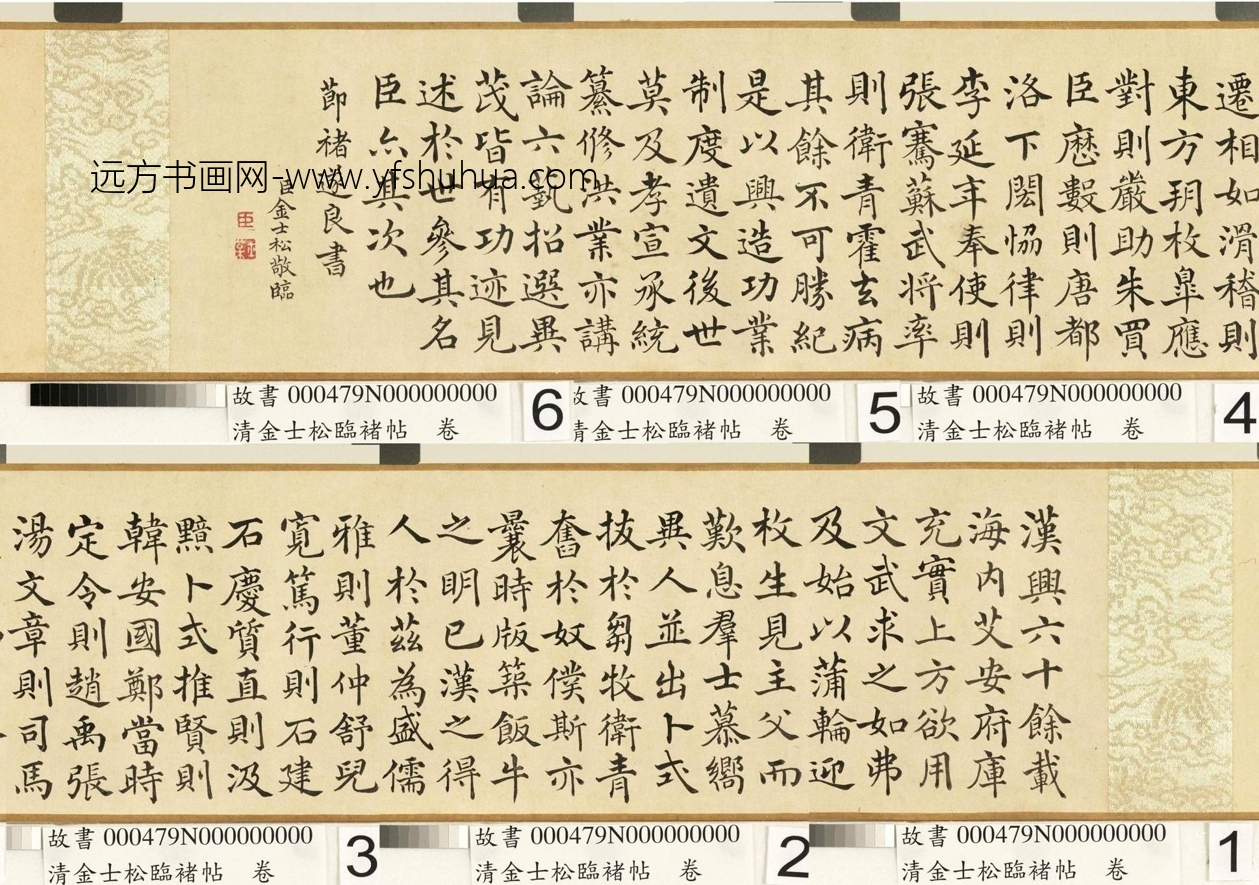 漢興六十餘載
海内艾安府庫
充實上方欲用
文武求之如弗
及始以蒲輪迎
枚生見主父而
歎息羣士慕嚮
異人並出卜式
拔於芻牧衛青
奮於奴僕斯亦
曩時版築飯牛
之明已漢之得
人於茲為盛儒
雅則董仲舒兒
寬篤行則石建
石慶質直則汲
黯卜式推賢則
韓安國鄭當時
定令則趙禹張
湯文章則司馬
遷相如滑稽則
東方朔枚皐應
對則嚴助朱買
臣厯數則唐都
洛下閎恊律則
李延年奉使則
張騫蘇武將率
則衛青霍去病
其餘不可勝紀
是以興造功業
制度遺文後世
莫及孝宣承統
纂修洪業亦講
論六藝招選異
茂皆有功迹見
述於世參其名
臣亦其次也
節褚遂良書
臣金士松敬臨
远方书画网-www.yfshuhua.com
故書 000479N000000000
清金士松臨褚帖 卷
6
故書 000479N000000000
清金士松臨褚帖 卷
5
故書 000479N000000000
清金士松臨褚帖 卷
4
故書 000479N000000000
清金士松臨褚帖 卷
3
故書 000479N000000000
清金士松臨褚帖 卷
2
故書 000479N000000000
清金士松臨褚帖 卷
1